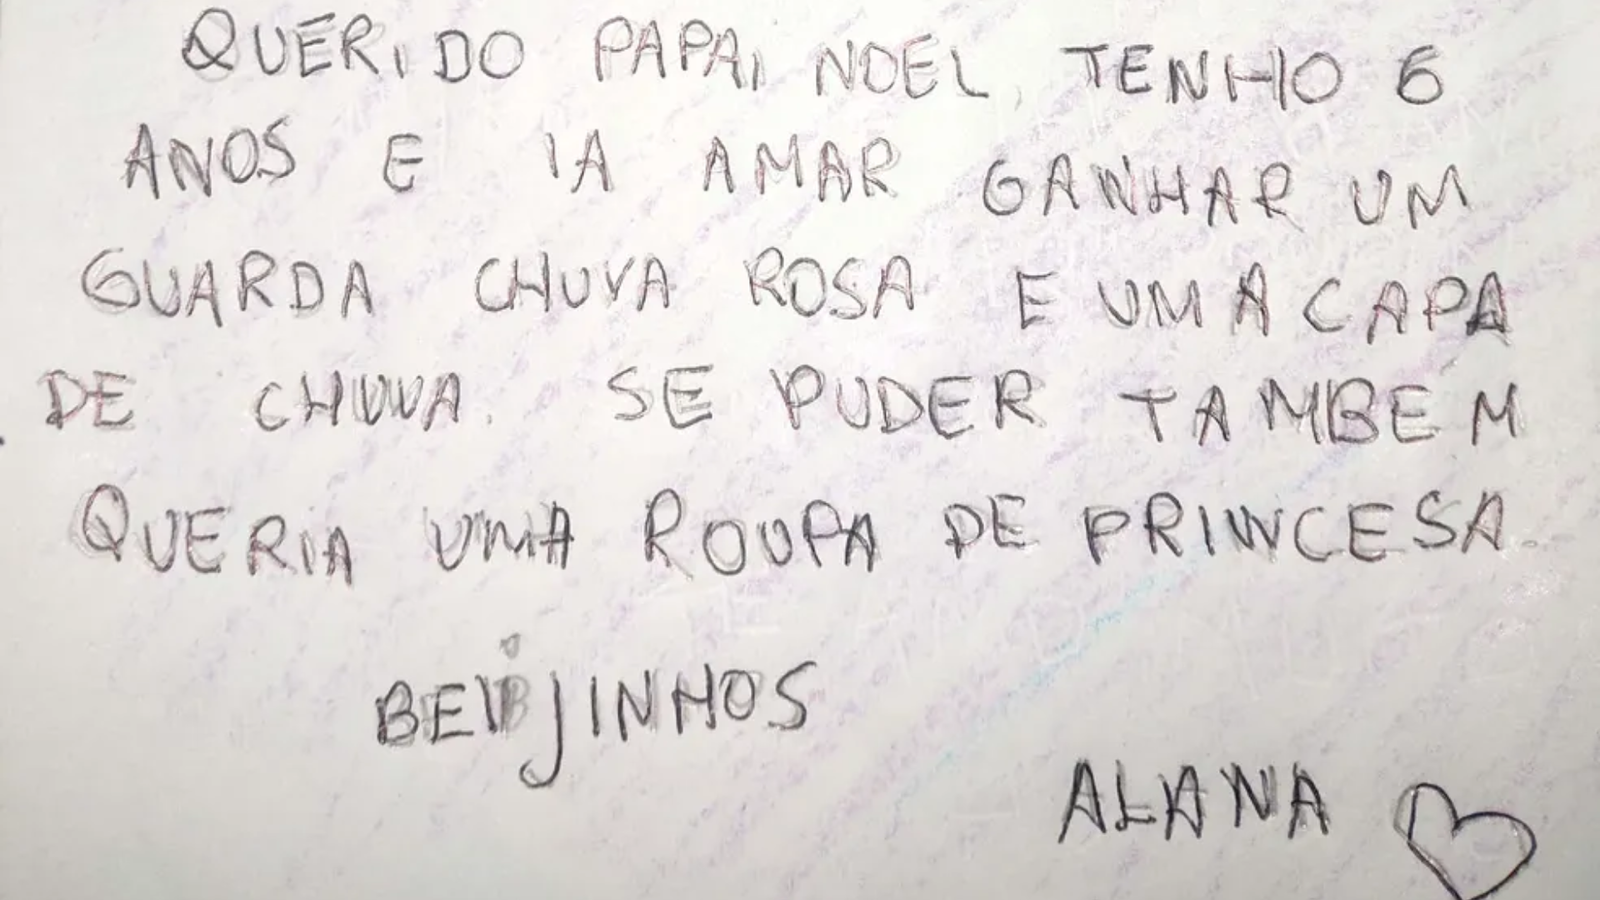 QUERIDO PAPAI NOEL, TENHO 6
ANOS E IA AMAR GANHAR UM
GUARDA CHUVA ROSA E UMA CAPA
DE CHUVA. SE PUDER TAMBEM
QUERIA UMA ROUPA DE PRINCESA.
BEIJINHOS
ALANA